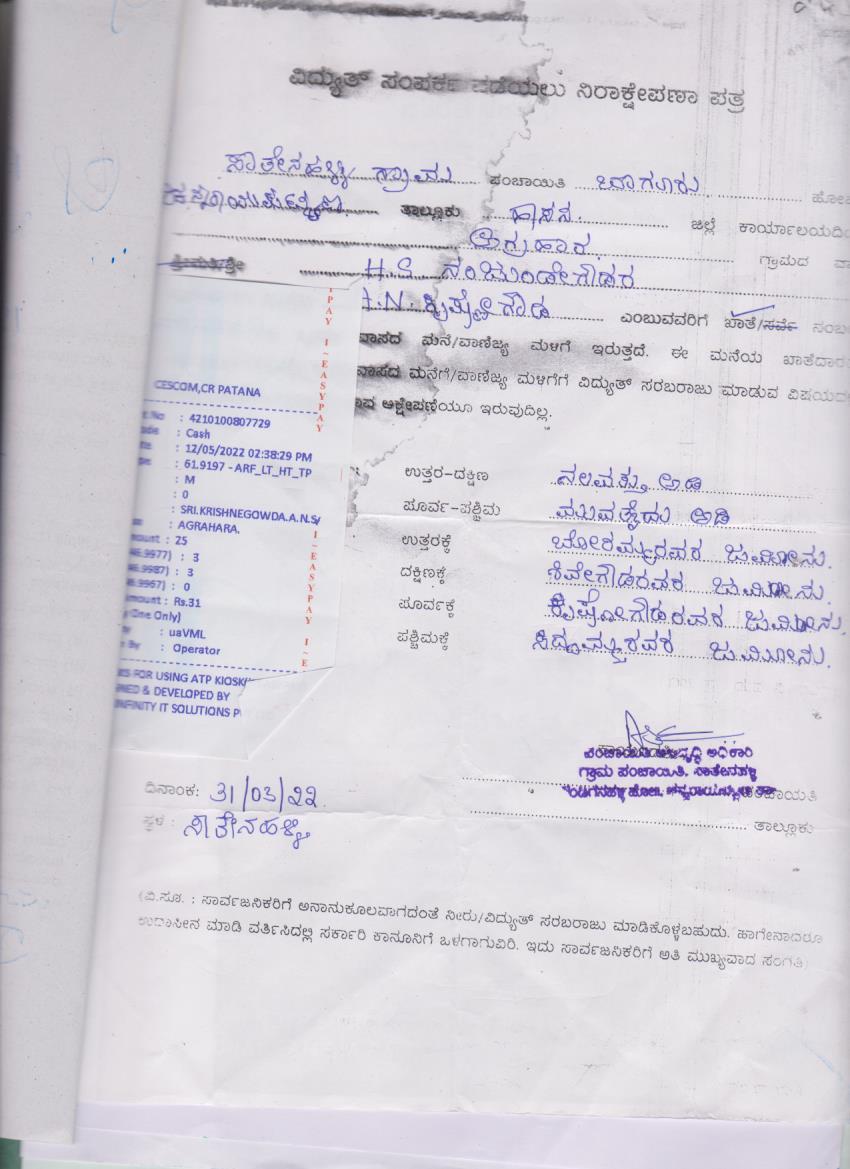 ವಿದ್ಯುತ್ ಸಂಪರ್ಕ ಪಡೆಯಲು ನಿರಾಕ್ಷೇಪಣಾ ಪತ್ರ
ಸಾತೇನಹಳ್ಳಿ ಗ್ರಾಮ ಪಂಚಾಯಿತಿ ಬಾಗೂರು
ತಾಲ್ಲೂಕು ಹಾಸನ. ಜಿಲ್ಲೆ ಕಾರ್ಯಾಲಯದಿ
ಅಗ್ರಹಾರ. ಗ್ರಾಮದ
H.S. ನಂಜುಂಡೇಗೌಡರ
A.N. ಕೃಷ್ಣೇಗೌಡ ಎಂಬುವವರಿಗೆ ಖಾತೆ/ಸರ್ವೆ
ವಾಸದ ಮನೆ/ವಾಣಿಜ್ಯ ಮಳಿಗೆ ಇರುತ್ತದೆ. ಈ ಮನೆಯ ಖಾತೆದಾರ
ವಾಸದ ಮನೆಗೆ/ವಾಣಿಜ್ಯ ಮಳಿಗೆಗೆ ವಿದ್ಯುತ್ ಸರಬರಾಜು ಮಾಡುವ ವಿಷಯದ
ಆಕ್ಷೇಪಣೆಯೂ ಇರುವುದಿಲ್ಲ.
CESCOM,CR PATANA
: 4210100807729
: Cash
: 12/05/2022 02:38:29 PM
: 61.9197 - ARF_LT_HT_TP
: M
: 0
: SRI.KRISHNEGOWDA.A.N.S/
: AGRAHARA.
: 25
9977) : 3
9987) : 3
9967) : 0
mount : Rs.31
One Only)
: uaVML
By : Operator
FOR USING ATP KIOSK
& DEVELOPED BY
INFINITY IT SOLUTIONS P
PAY I~EASYPAY
I~EASYPAY I~E
ಉತ್ತರ-ದಕ್ಷಿಣ ನಲವತ್ತು ಅಡಿ
ಪೂರ್ವ-ಪಶ್ಚಿಮ ಮುವತ್ತೈದು ಅಡಿ
ಉತ್ತರಕ್ಕೆ ಬೋರಮ್ಮರವರ ಜಮೀನು.
ದಕ್ಷಿಣಕ್ಕೆ ಶಿವೇಗೌಡರವರ ಜಮೀನು.
ಪೂರ್ವಕ್ಕೆ ಕೃಷ್ಣೇಗೌಡರವರ ಜಮೀನು.
ಪಶ್ಚಿಮಕ್ಕೆ ಸಿದ್ದಮ್ಮರವರ ಜಮೀನು.
ಪಂಚಾಯಿತಿ ಅಭಿವೃದ್ಧಿ ಅಧಿಕಾರಿ
ಗ್ರಾಮ ಪಂಚಾಯಿತಿ, ಸಾತೇನಹಳ್ಳಿ
ದಿನಾಂಕ: 31/03/22
ಸ್ಥಳ : ಸಾತೇನಹಳ್ಳಿ
ತಾಲ್ಲೂಕು
(ವಿ.ಸೂ. : ಸಾರ್ವಜನಿಕರಿಗೆ ಅನಾನುಕೂಲವಾಗದಂತೆ ನೀರು/ವಿದ್ಯುತ್ ಸರಬರಾಜು ಮಾಡಿಕೊಳ್ಳಬಹುದು. ಹಾಗೇನಾದರೂ
ಉದಾಸೀನ ಮಾಡಿ ವರ್ತಿಸಿದಲ್ಲಿ ಸರ್ಕಾರಿ ಕಾನೂನಿಗೆ ಒಳಗಾಗುವಿರಿ. ಇದು ಸಾರ್ವಜನಿಕರಿಗೆ ಅತಿ ಮುಖ್ಯವಾದ ಸಂಗತಿ)